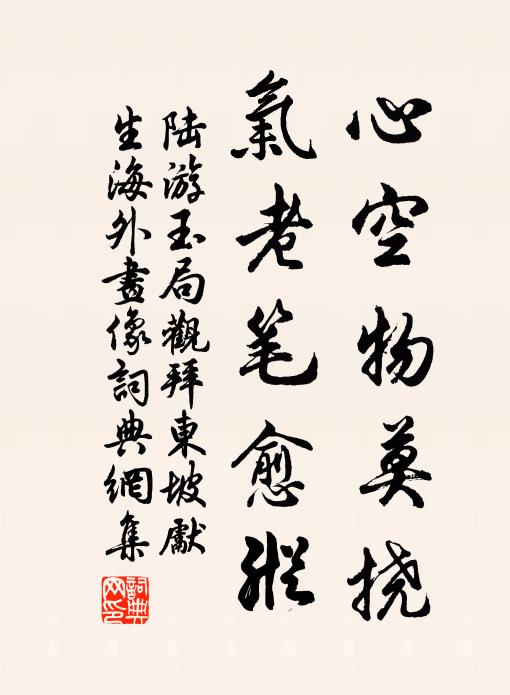 心空物莫挠
氣老笔愈縱
陆游玉局觀拜東坡獻
生海外畫像詞典網集
詞典网印